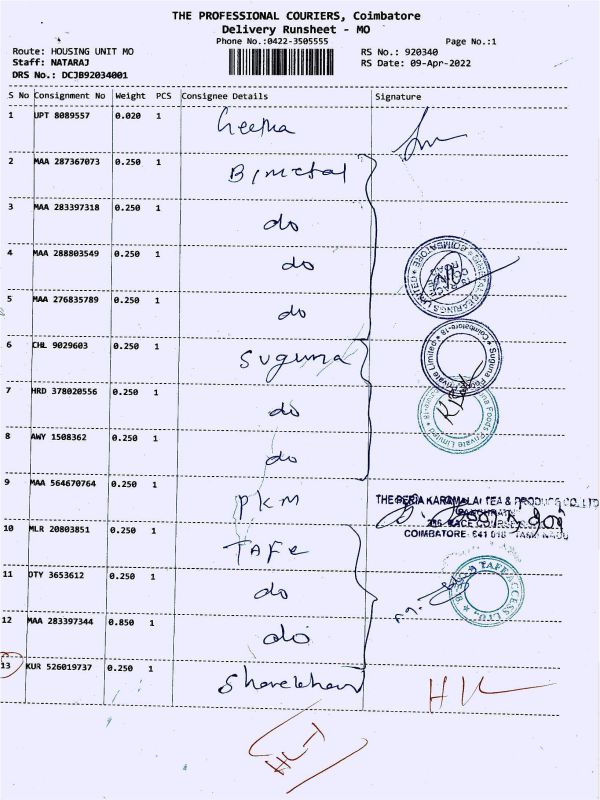 THE PROFESSIONAL COURIERS, Coimbatore
Delivery Runsheet - MO
Phone No.:0422-3505555
Page No.:1
Route: HOUSING UNIT MO
RS No.: 920340
Staff: NATARAJ
RS Date: 09-Apr-2022
DRS No.: DCJB92034001
S No Consignment No Weight PCS Consignee Details Signature
1 UPT 8089557 0.020 1
2 MAA 287367073 0.250 1 Bimetal
3 MAA 283397318 0.250 1 do
4 MAA 288803549 0.250 1 do
5 MAA 276835789 0.250 1 do
6 CHL 9029603 0.250 1 Suguna
7 HRD 378020556 0.250 1 do
8 AWY 1508362 0.250 1 do
9 MAA 564670764 0.250 1 PKM
THE PERIA KARAMALAI TEA & PRODUCE CO. LTD
286, RACE COURSE
COIMBATORE - 641 018
10 MLR 20803851 0.250 1 TAFE
11 OTY 3653612 0.250 1 do
12 MAA 283397344 0.850 1 do
13 KUR 526019737 0.250 1 Sharekhan
HC-1